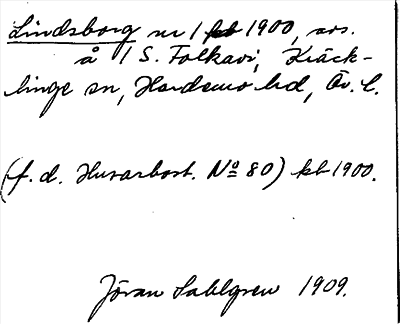 Lindsborg nr 1 kb 1900, avs.
å 1 S. Folkavi, Kräck-
linge sn, Hardemo hd, Ör. l.
(f. d. Husarbost. No 80) kb 1900.
Jöran Sahlgren 1909.